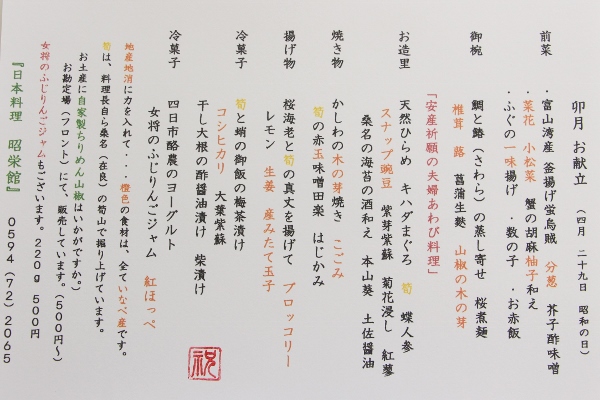 卯月 お献立 (四月 二十九日 昭和の日)
前菜 ・富山湾産 釜揚げ蛍烏賊 分葱 芥子酢味噌
・菜花 小松菜 蟹の胡麻柚子和え
・ふぐの一味揚げ ・数の子 ・お赤飯
御椀 鯛と鰆(さわら)の蒸し寄せ 桜煮麺
椎茸 蕗 菖蒲生麩 山椒の木の芽
「安産祈願の夫婦あわび料理」
お造里 天然ひらめ キハダまぐろ 筍 蝶人参
スナップ豌豆 紫芽紫蘇 菊花浸し 紅蓼
桑名の海苔の酒和え 本山葵 土佐醤油
焼き物 かしわの木の芽焼き こごみ
筍の赤玉味噌田楽 はじかみ
揚げ物 桜海老と筍の真丈を揚げて ブロッコリー
レモン 生姜 産みたて玉子
冷菓子 筍と蛸の御飯の梅茶漬け
コシヒカリ 大葉紫蘇
干し大根の酢醤油漬け 柴漬け
冷菓子 四日市酪農のヨーグルト
女将のふじりんごジャム 紅ほっぺ
地産地消に力を入れて・橙色の食材は、全ていなべ産です。
筍は、料理長自ら桑名(在良)の筍山で掘り上げています。
お土産に自家製ちりめん山椒はいかがですか。
お勘定場(フロント)にて、販売しています。(500円~)
女将のふじりんごジャムもございます。220g 500円
『日本料理 昭栄館』 0594(72)2065
祝